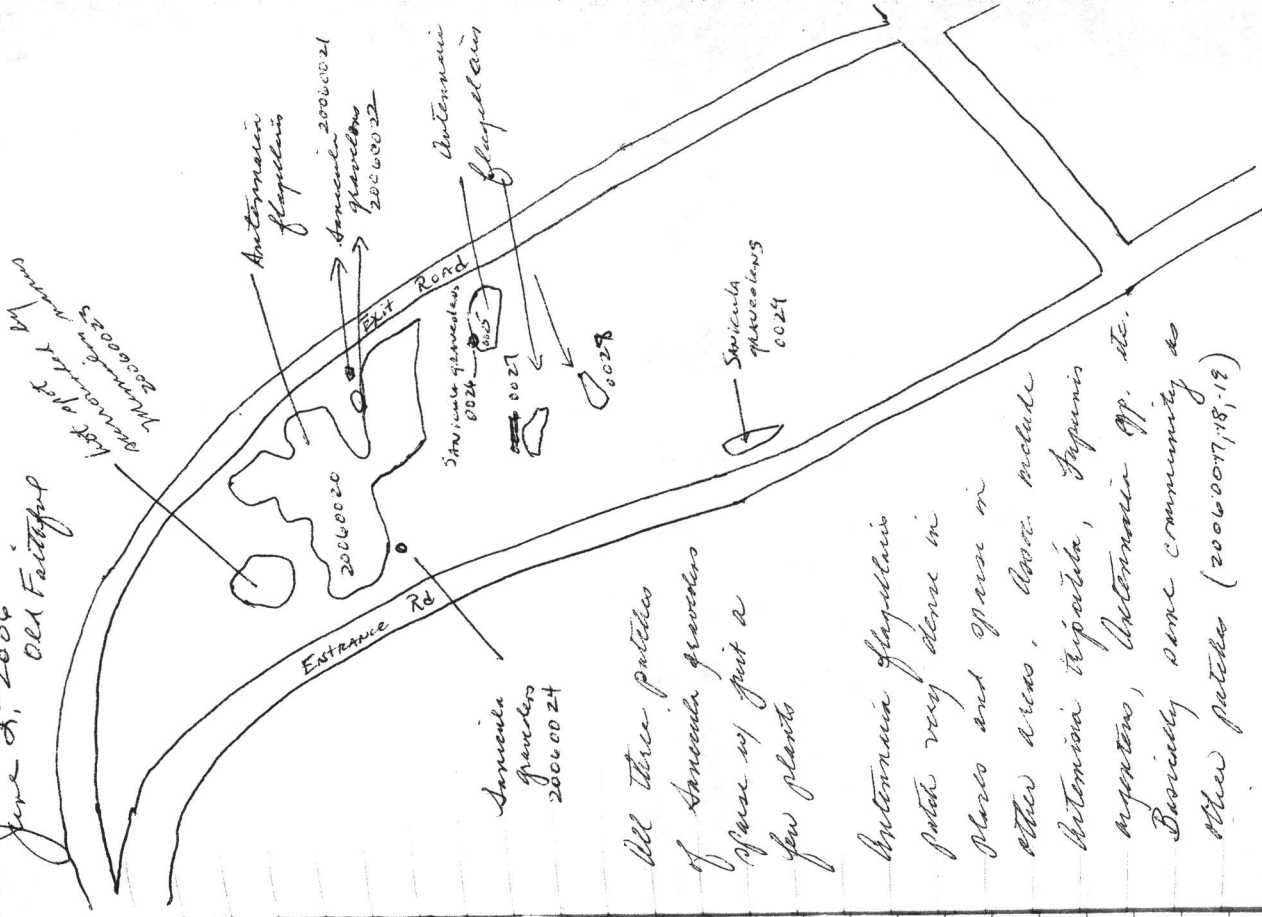 June 2, 2006
Old Faithful
Hot spot
surrounded by
20060023
Antennaria
flagellaris
Sanicula 20060021
graveolens
20060022
Antennaria
flagellaris
Exit Road
20060020
Sanicula graveolens
0026
0025
0027
0028
Sanicula
graveolens
0029
ENTRANCE Rd
Sanicula
graveolens
20060024
All three patches
of Sanicula graveolens
sparse w/ just a
few plants
Antennaria flagellaris
patch very dense in
places and sparse in
other areas. Assoc. include
Artemisia tripartita, Lupinus
argenteus, Antennaria spp. etc.
Basically same community as
other patches (20060017,-18,-19)